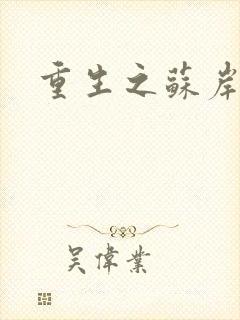 重生之蘇岸
吳偉業